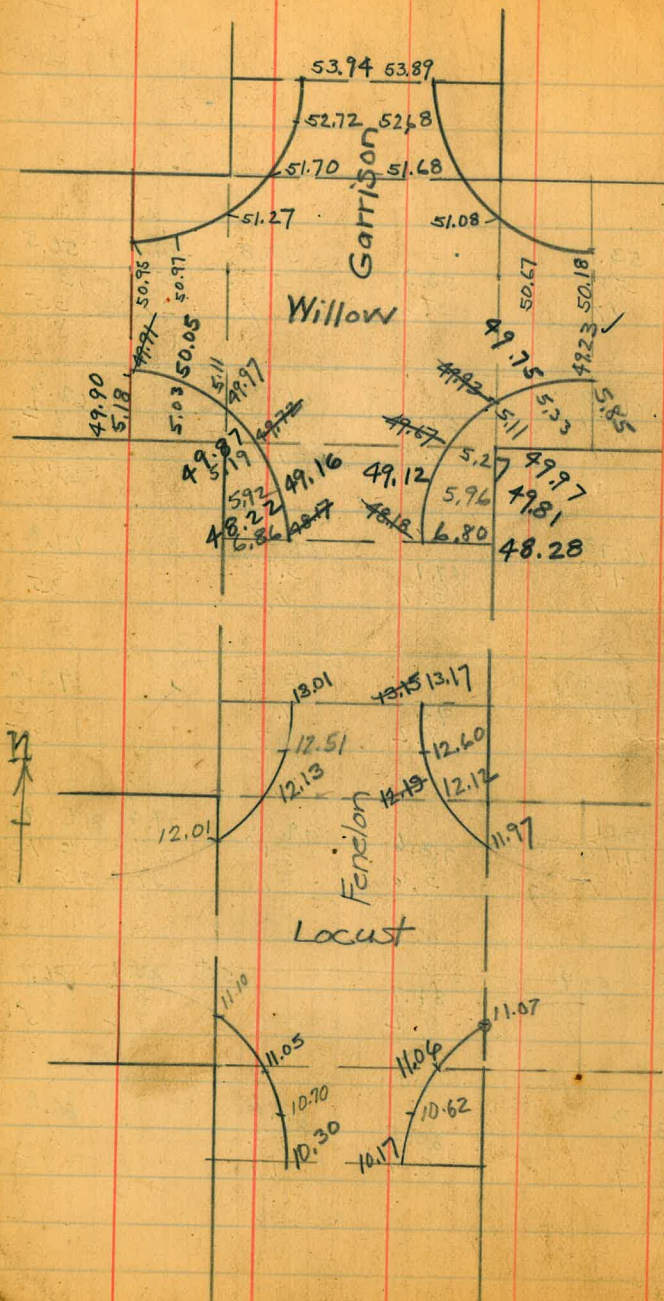 53.94 53.89
52.72 52.68
51.70 51.68
51.27 51.08
Garrison
50.95 50.97 50.67 50.18
Willow
49.91 50.05 49.75 49.23 ✓
49.90 5.18 5.03 5.11 49.97 49.93 5.11 5.33 5.85
49.72 49.67
49.87 5.19 5.27 49.97
49.16 49.12
5.92 5.96 49.81
48.22 48.17 48.18
6.86 6.80 48.28
13.01 13.15 13.17
N
12.51 12.60
12.13 12.19 12.12
12.01 11.97
Fenelon
Locust
11.10 11.07
11.05 11.06
10.70 10.62
10.30 10.17